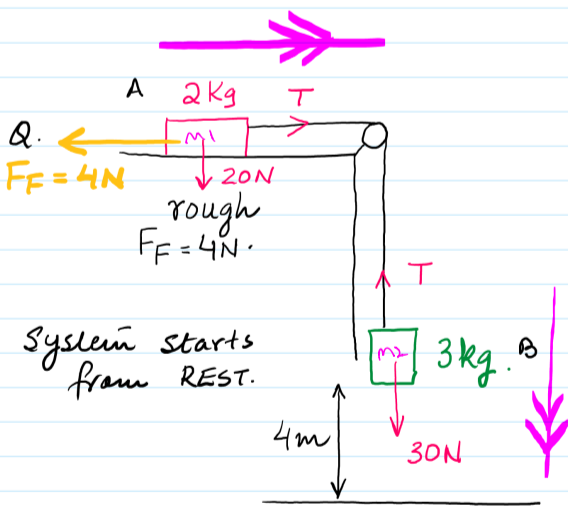 A 2Kg T
Q.
m1
FF = 4N
20N
rough
FF = 4N.
T
System starts
from REST.
m2 3kg. B
4m
30N